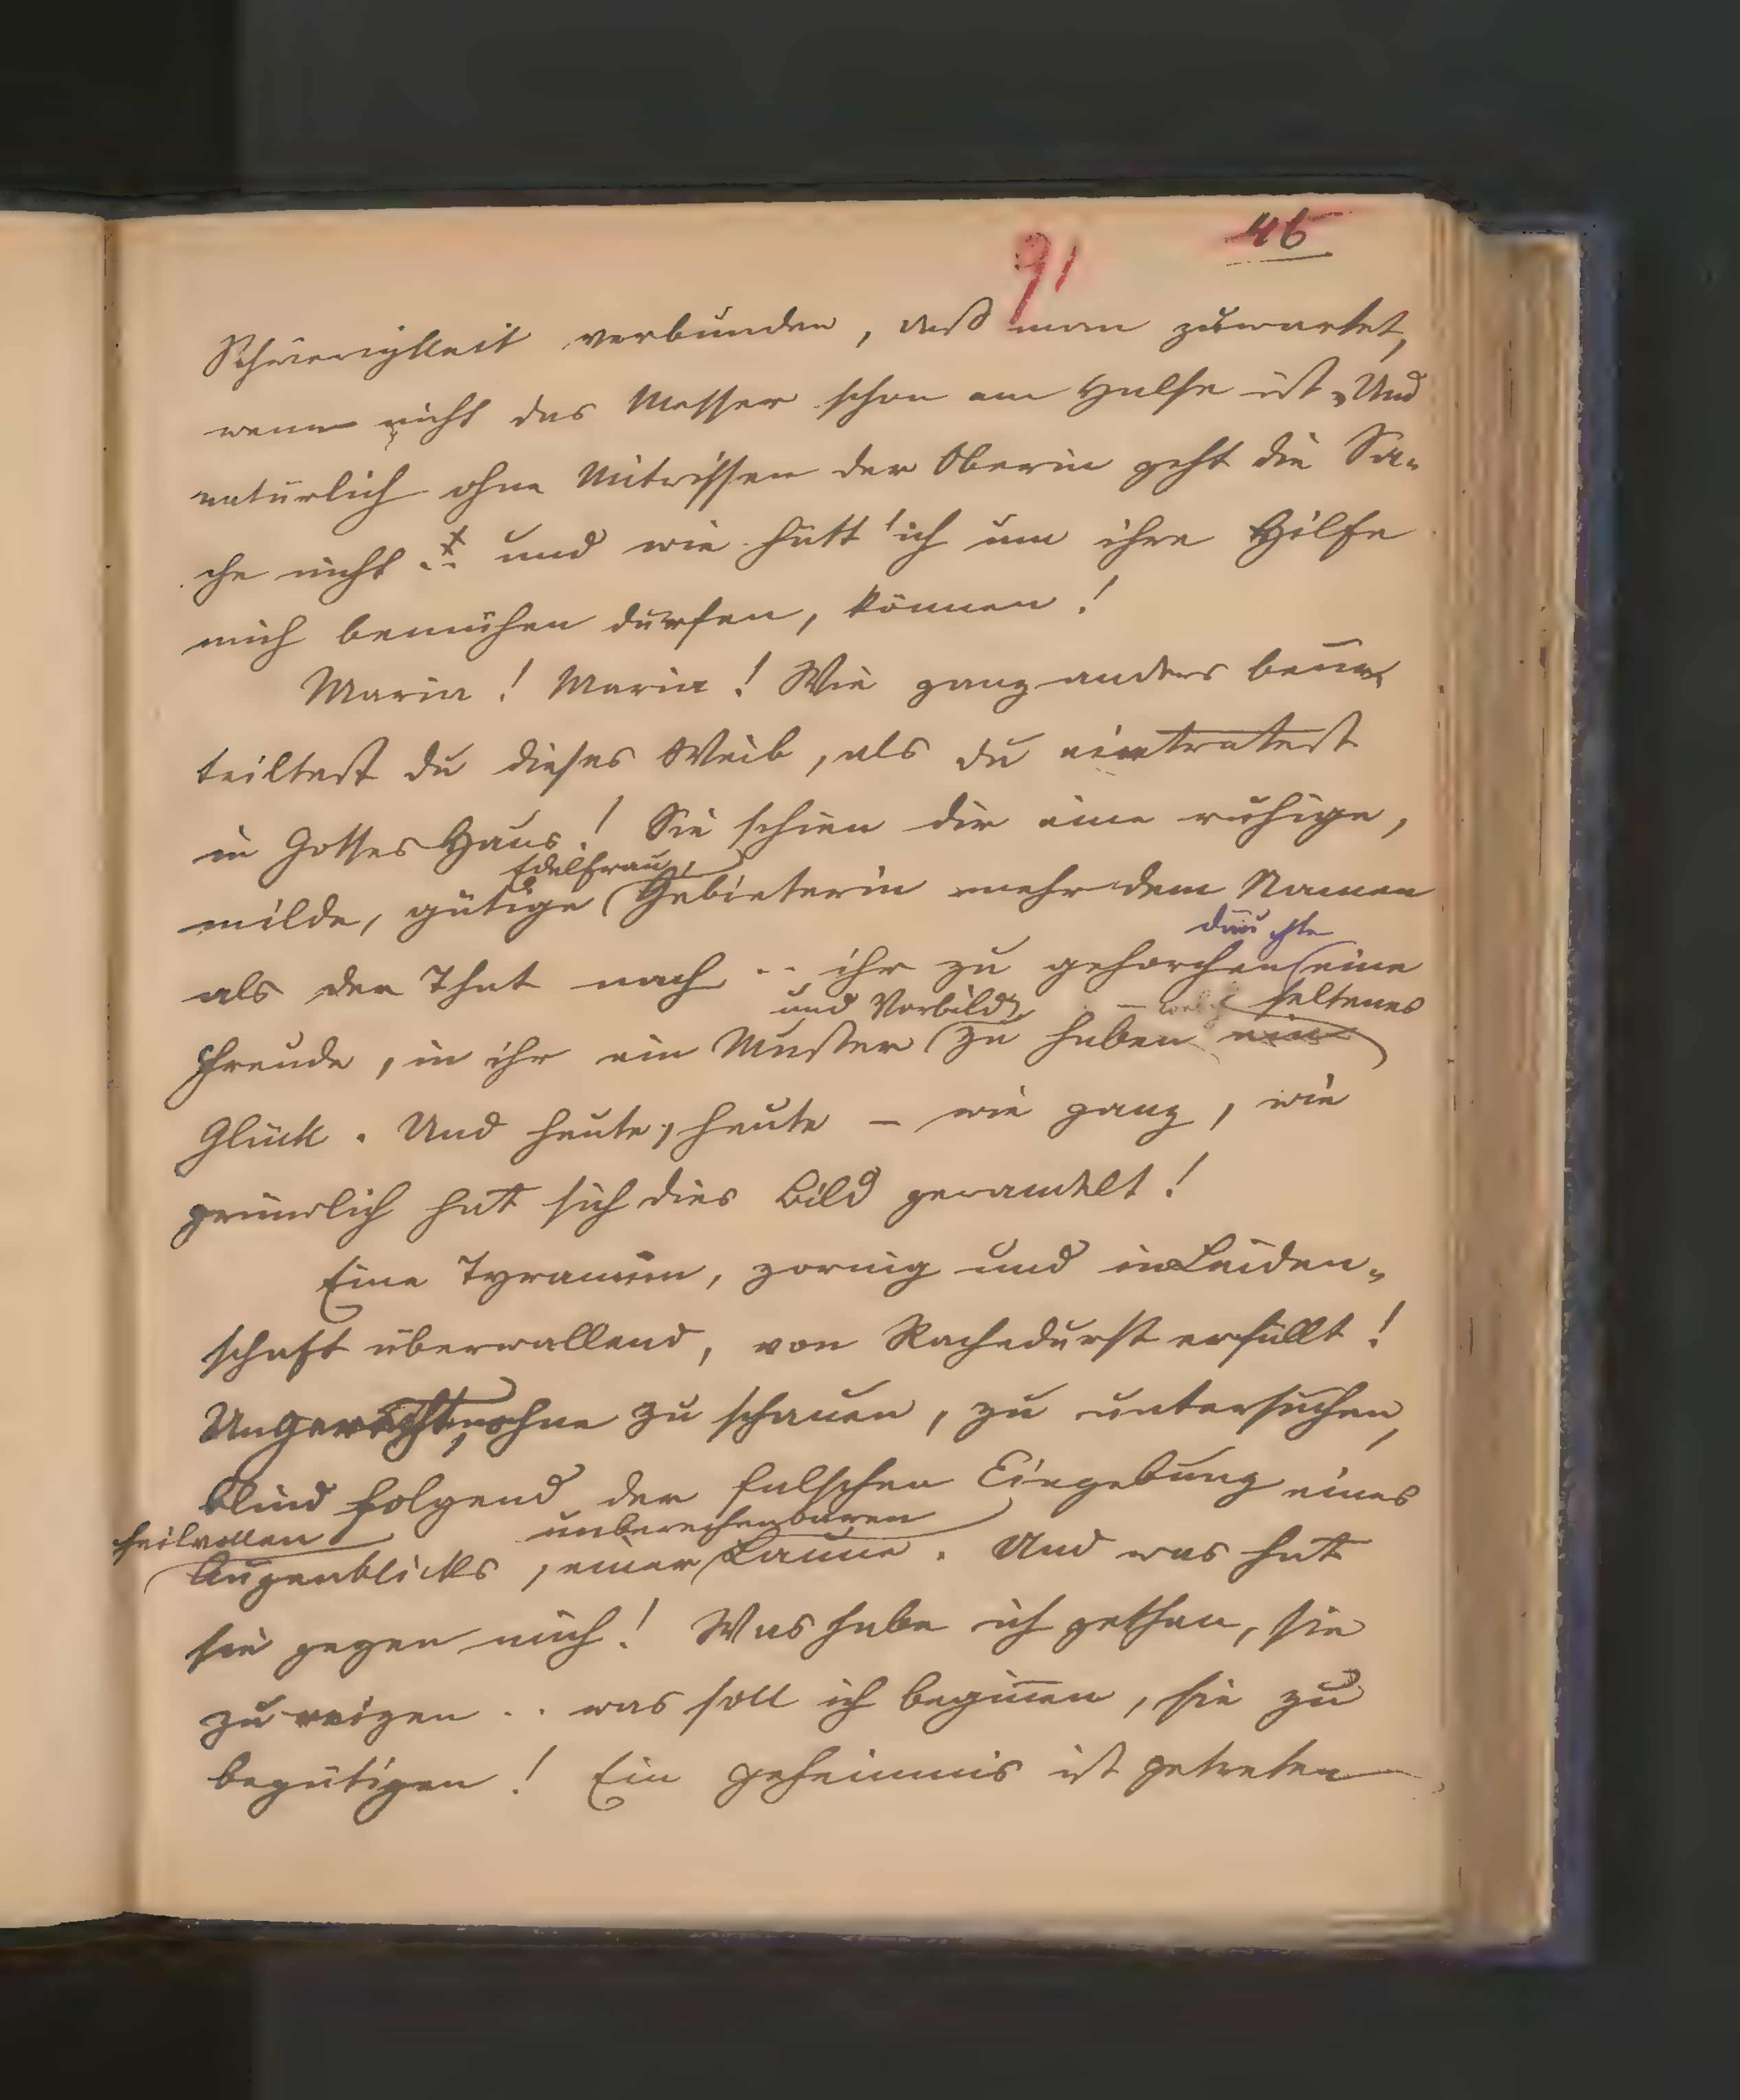 46
91
Schwierigkeit verbunden, daß man zuwartet,
wenn nicht das Messer schon am Halse ist. Und
natürlich ohne Mitwissen der Oberin geht die Sa-
che nicht .. und wie hätt' ich um ihre Hilfe
mich bemühen dürfen, können!
Maria! Maria! Wie ganz anders beur-
teiltest du dieses Weib, als du eintratest
in Gottes Haus! Sie schien dir eine ruhige,
Edelfrau,
milde, gütige Gebieterin mehr dem Namen
däuchte
als der That nach .. ihr zu gehorchen eine
und Vorbild – welch seltenes
Freude, in ihr ein Muster zu haben ein
Glück. Und heute, heute – wie ganz, wie
gründlich hat sich dies Bild gewandelt!
Eine Tyrannin, zornig und in Leiden-
schaft überwallend, von Rachedurst erfüllt!
Ungerecht, ohne zu schauen, zu untersuchen,
blind folgend der falschen Eingebung eines
unberechenbaren
Augenblicks, einer Laune. Und was hat
sie gegen mich! Was habe ich gethan, sie
zu reizen .. was soll ich beginnen, sie zu
begütigen! Ein Geheimnis ist getreten